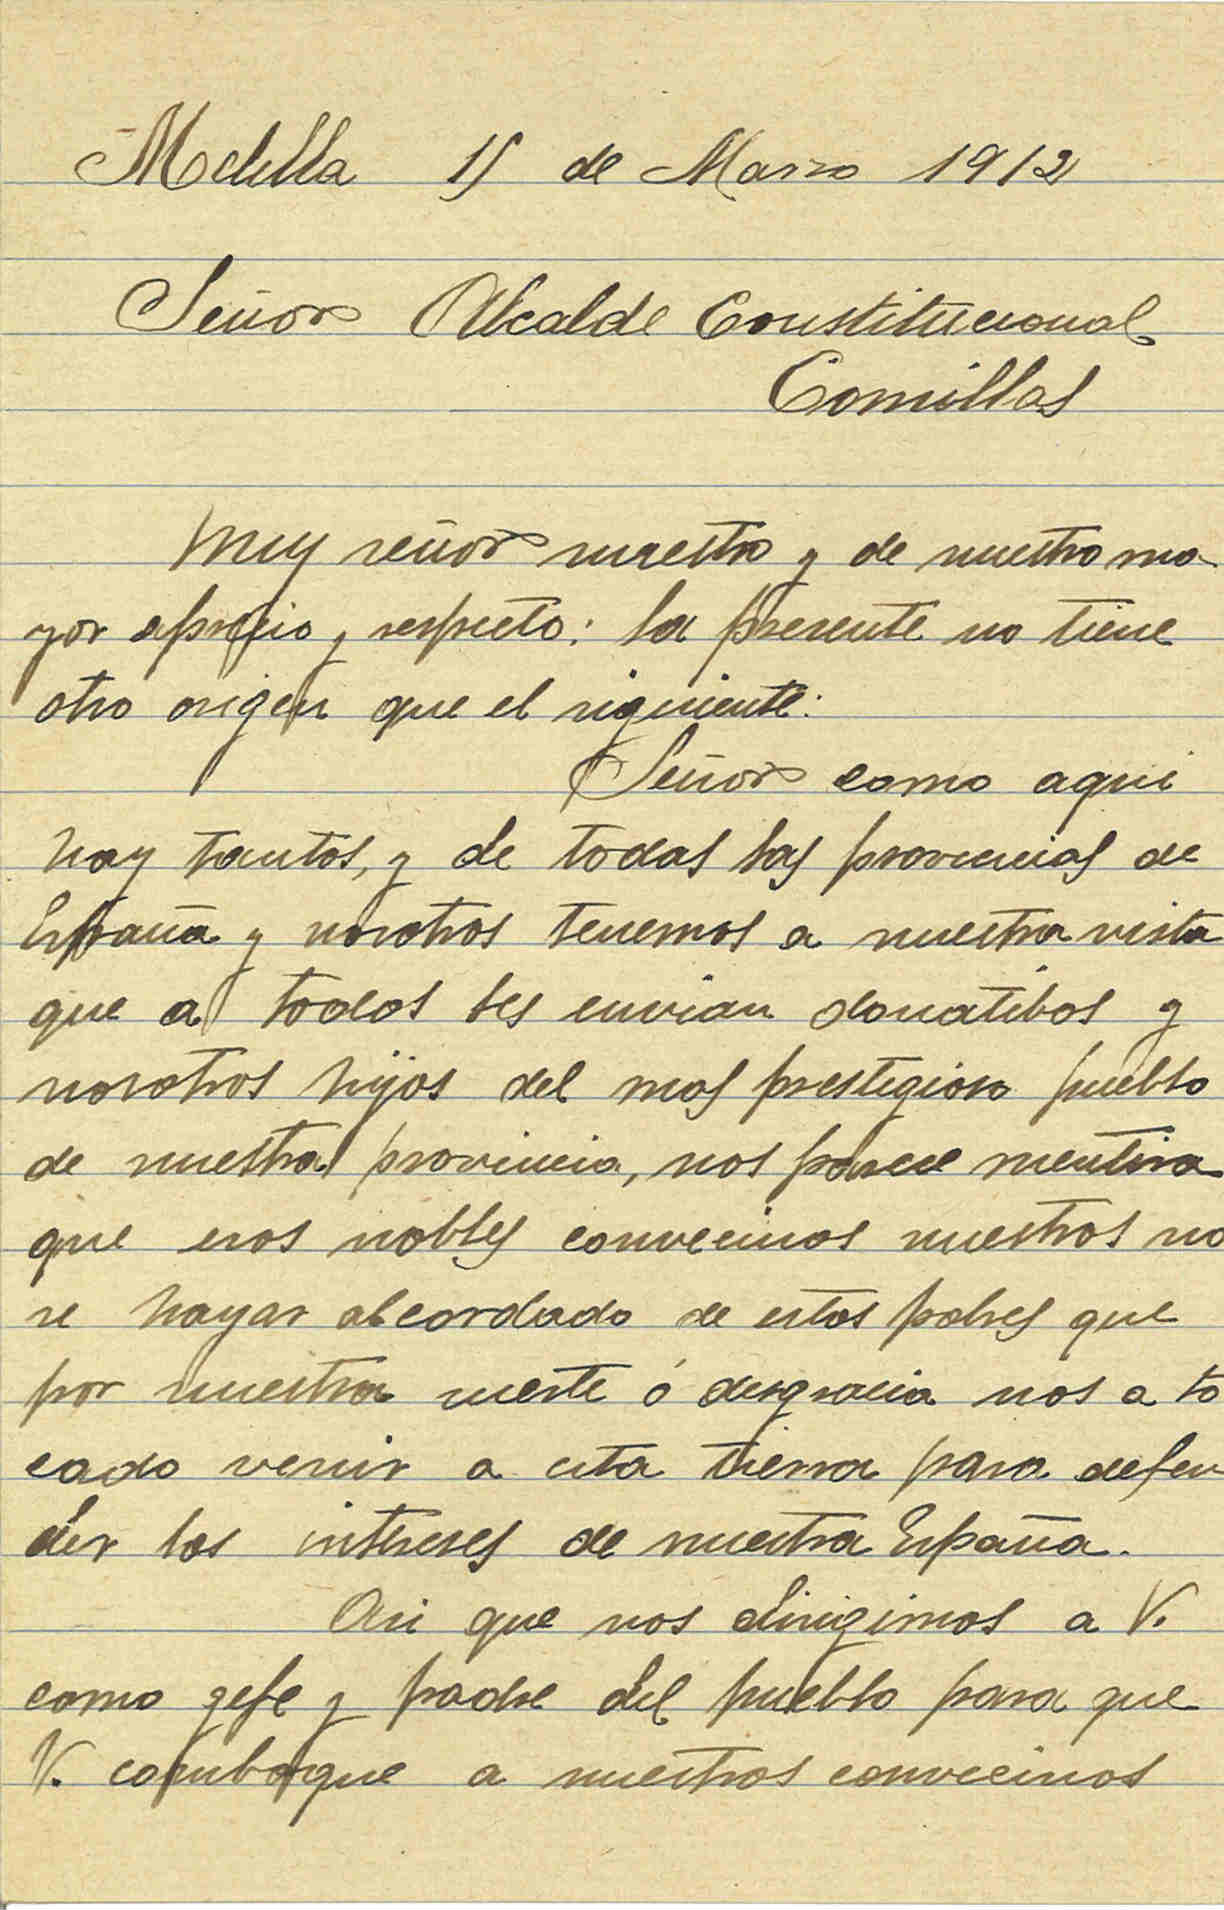 Melilla 15 de Marzo 1912
Señor Alcalde Constitucional
Comillas
Muy señor nuestro y de nuestro ma-
yor aprecio y respeto: la presente no tiene
otro origen que el siguiente:
Señor como aqui
hay tantos, y de todas las provincias de
España y nosotros tenemos a nuestra vista
que a todos les envian donatibos y
nosotros hijos del mas prestigioso pueblo
de nuestra provincia, nos parece mentira
que esos nobles convecinos nuestros no
se hayar alcordado de estos pobres que
por nuestra suerte ó desgracia nos a to
cado venir a esta tierra para defen
der los intereses de nuestra España.
Asi que nos dirigimos a V.
como gefe y padre del pueblo para que
V. comboque a nuestros convecinos